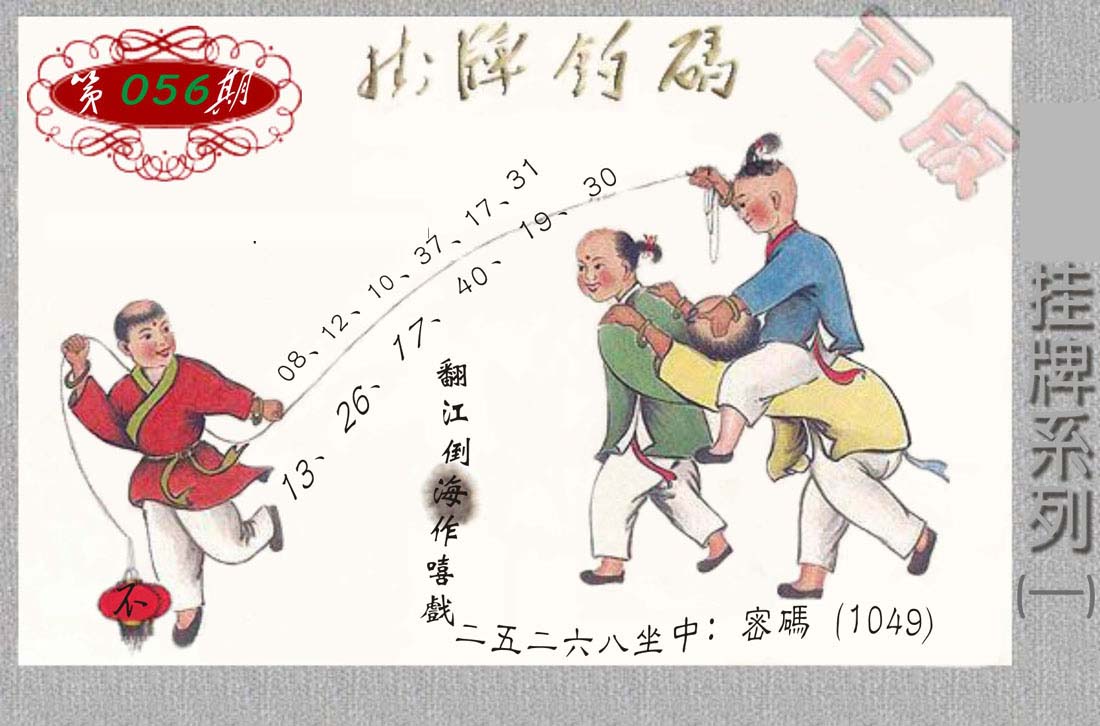 第056期
掛牌釣碼
正版
08、12、10、37、17、31
13、26、17、40、19、30
翻江倒海作嘻戲
不
二五二六八坐中：密碼（1049）
挂牌系列(一)